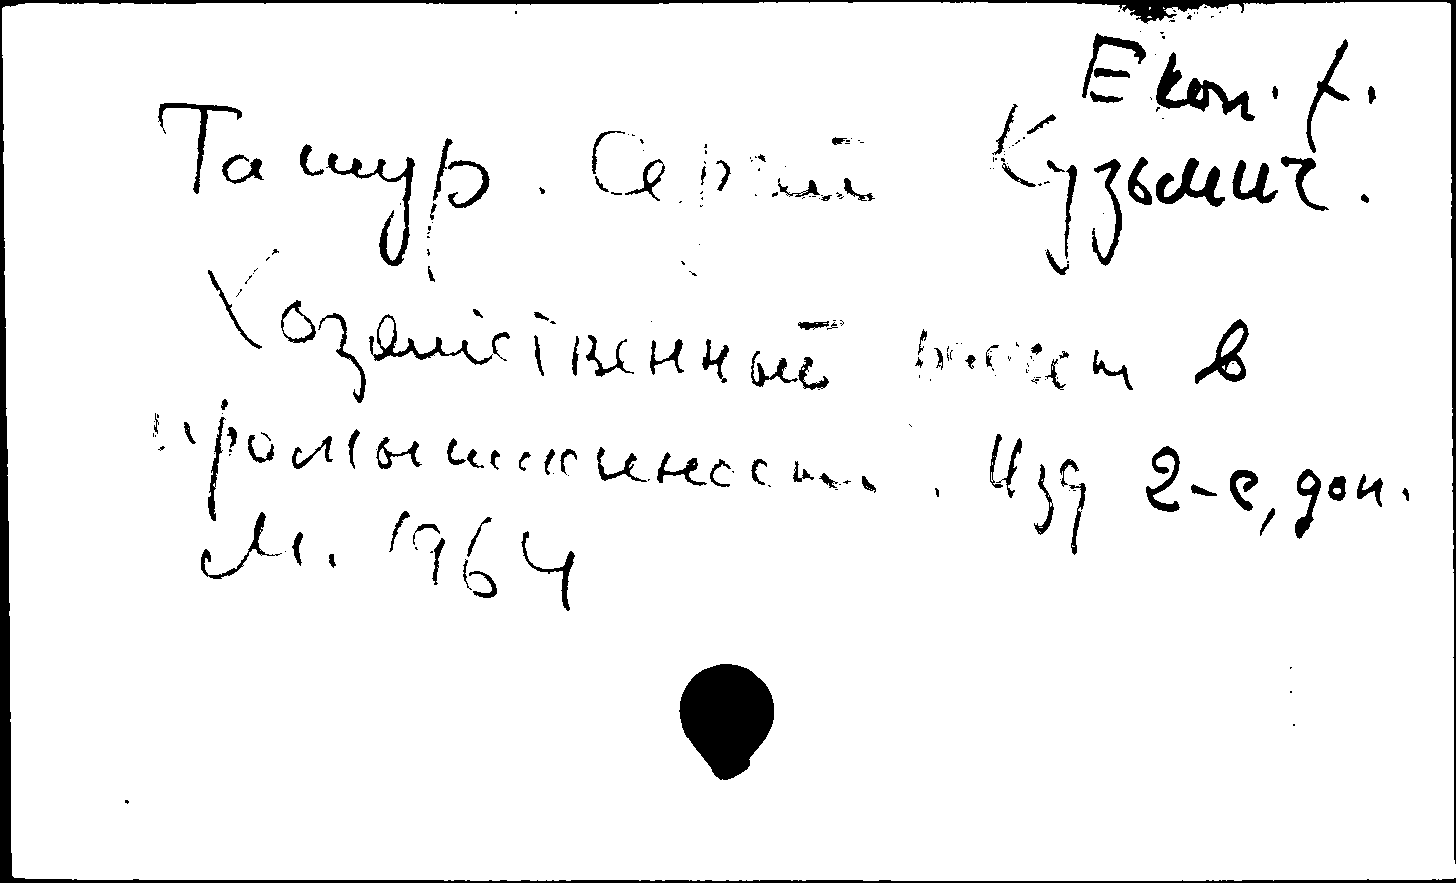 Екон. х.
Татур. Сергей Кузьмич.
Хозяйственный расчет в
промышленности. Изд 2-е, доп.
М. 1964